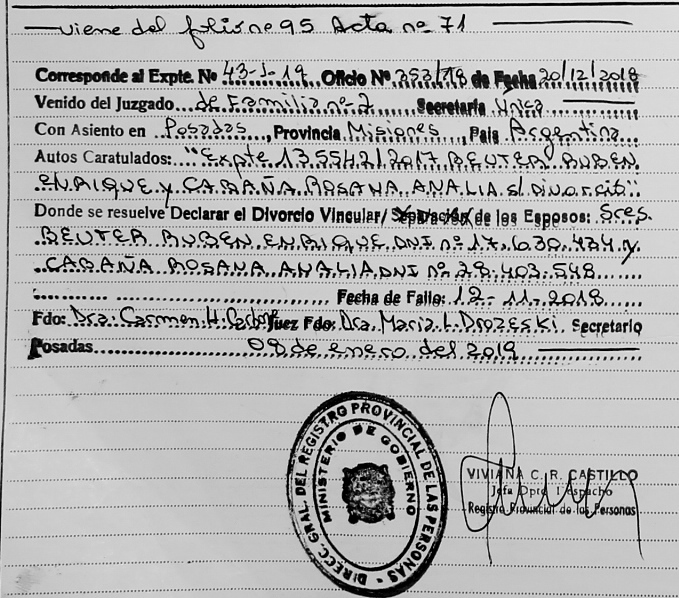 viene del folio nº 95 Acta nº 71
Corresponde al Expte. Nº 43-J-19 Oficio Nº 353/18 de Fecha 20/12/2018
Venido del Juzgado de Familia nº 2 Secretaría Única
Con Asiento en Posadas, Provincia Misiones, Pais Argentina
Autos Caratulados: "Expte 135542/2017 REUTER RUBEN
ENRIQUE Y CABAÑA ROSANA ANALIA s/ Divorcio"
Donde se resuelve Declarar el Divorcio Vincular/ Separación de los Esposos: Sres.
REUTER RUBEN ENRIQUE DNI nº 17.630.434 y
CABAÑA ROSANA ANALIA DNI nº 28.403.548
Fecha de Fallo: 12-11-2018
Fdo: Dra. Carmen H. Juez Fdo: Dra. Maria L. Drozeski. Secretario
Posadas 08 de enero del 2019
DIRECC. GRAL. DEL REGISTRO PROVINCIAL DE LAS PERSONAS
MINISTERIO DE GOBIERNO
VIVIANA C. R. CASTILLO
Jefa Dpto. Despacho
Registro Provincial de las Personas